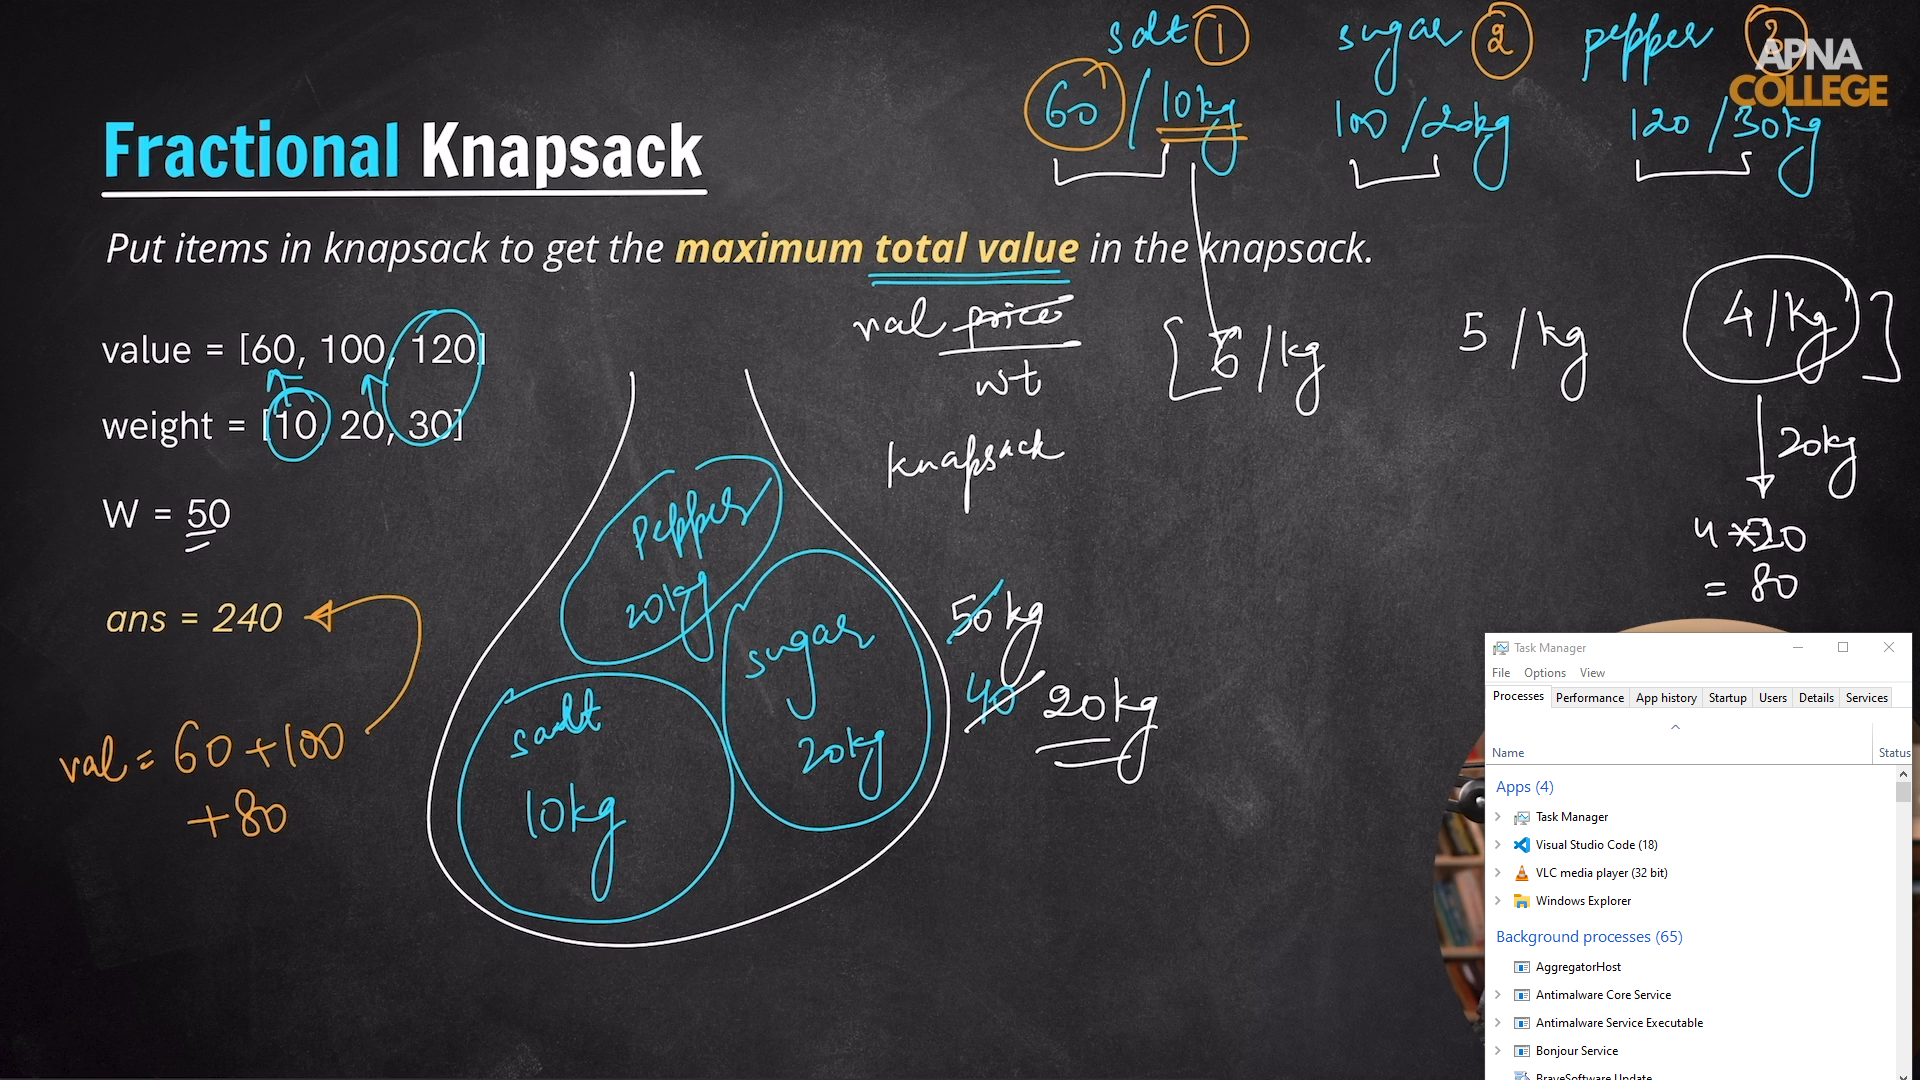 salt 1 sugar 2 pepper
APNA
COLLEGE
60 / 10kg 100 / 20kg 120 / 30kg
Fractional Knapsack
Put items in knapsack to get the maximum total value in the knapsack.
val price
wt
[ 6 /kg 5 /kg 4 /kg ]
value = [60, 100, 120]
weight = [10, 20, 30]
knapsack
20kg
W = 50
4 * 20
= 80
pepper
20kg
ans = 240
50kg
sugar
20kg
40 20kg
salt
10kg
val = 60 + 100
+ 80
Task Manager
File Options View
Processes Performance App history Startup Users Details Services
Name Status
Apps (4)
Task Manager
Visual Studio Code (18)
VLC media player (32 bit)
Windows Explorer
Background processes (65)
AggregatorHost
Antimalware Core Service
Antimalware Service Executable
Bonjour Service
BraveSoftware Update